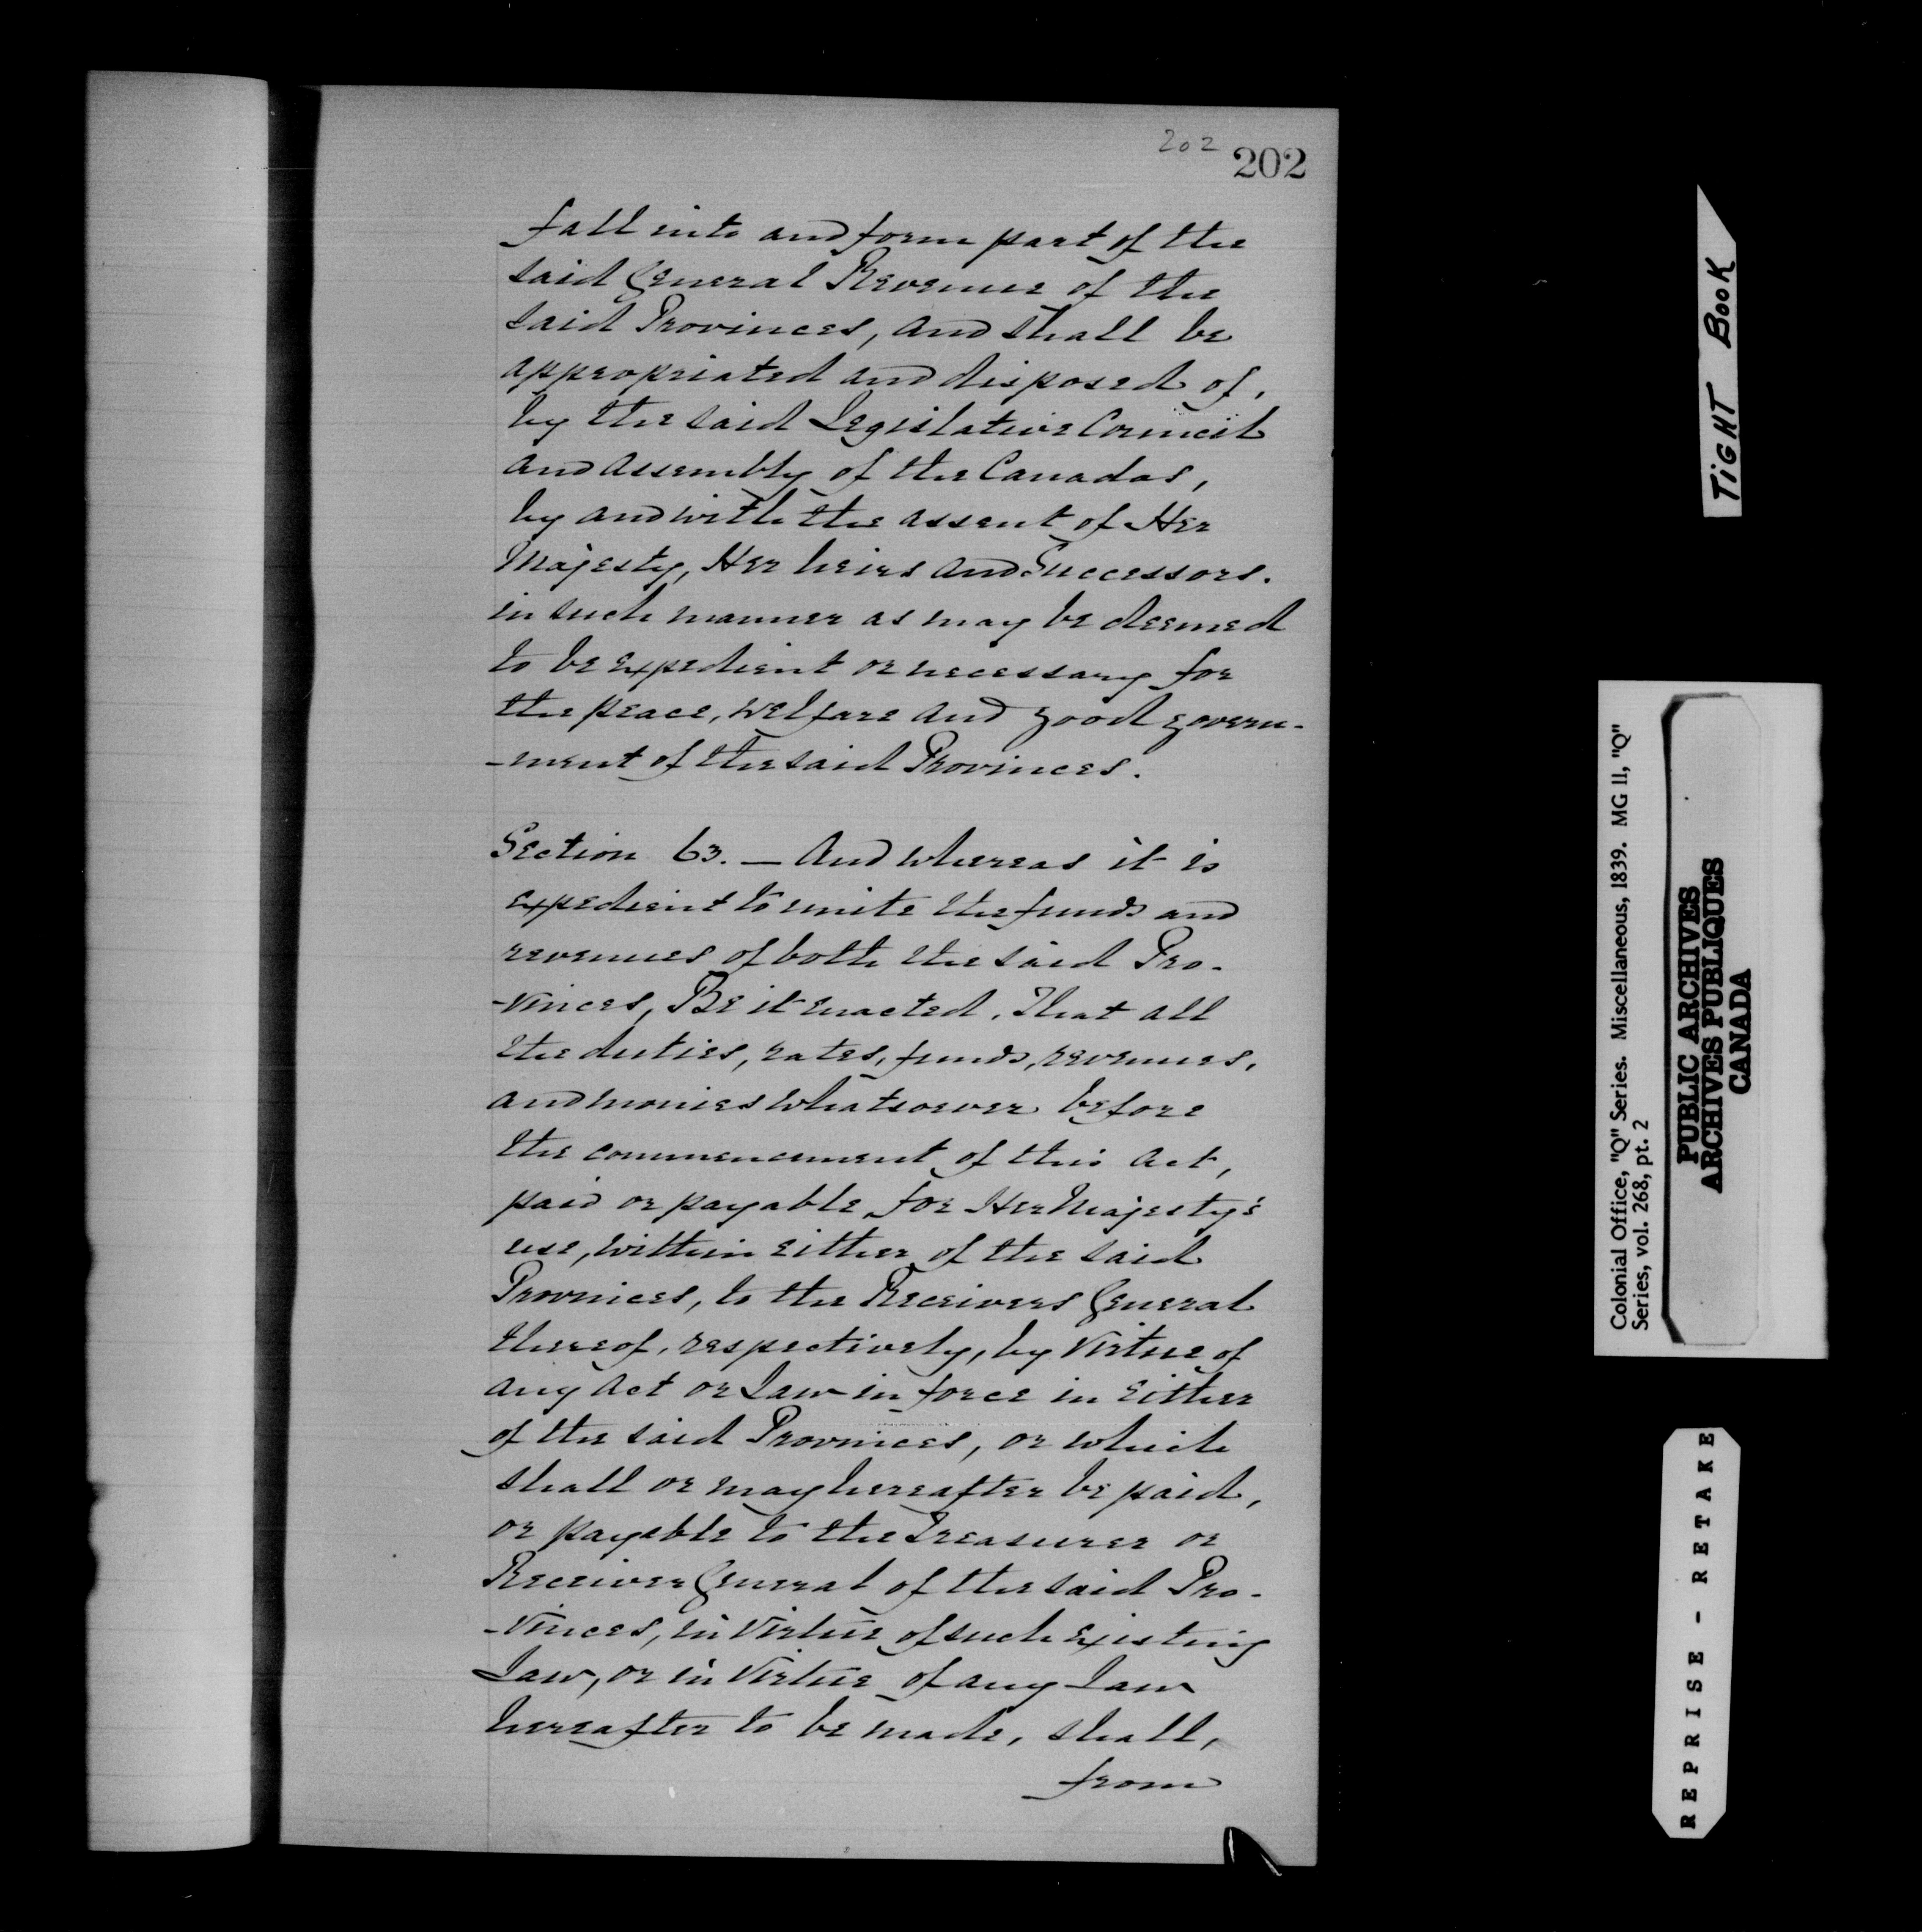 202
202
fall into and form part of the
said General Revenue of the
said Provinces, and shall be
appropriated and disposed of,
by the said Legislative Council
and Assembly of the Canadas,
by and with the assent of Her
Majesty, Her heirs and Successors.
in such manner as may be deemed
to be expedient or necessary for
the peace, welfare and good govern-
-ment of the said Provinces.
Section 63. — And whereas it is
expedient to unite the funds and
revenues of both the said Pro-
-vinces, Be it enacted, That all
the duties, rates, funds, revenues,
and monies whatsoever before
the commencement of this Act,
paid or payable, for Her Majesty's
use, within either of the said
Provinces, to the Receivers General
thereof, respectively, by virtue of
any Act or Law in force in either
of the said Provinces, or which
shall or may hereafter be paid,
or payable to the Treasurer or
Receiver General of the said Pro-
-vinces, in virtue of such existing
Law, or in virtue of any Law
hereafter to be made, shall,
from
TIGHT BOOK
Colonial Office, "Q" Series. Miscellaneous, 1839. MG 11, "Q"
Series, vol. 268, pt. 2
PUBLIC ARCHIVES
ARCHIVES PUBLIQUES
CANADA
REPRISE - RETAKE